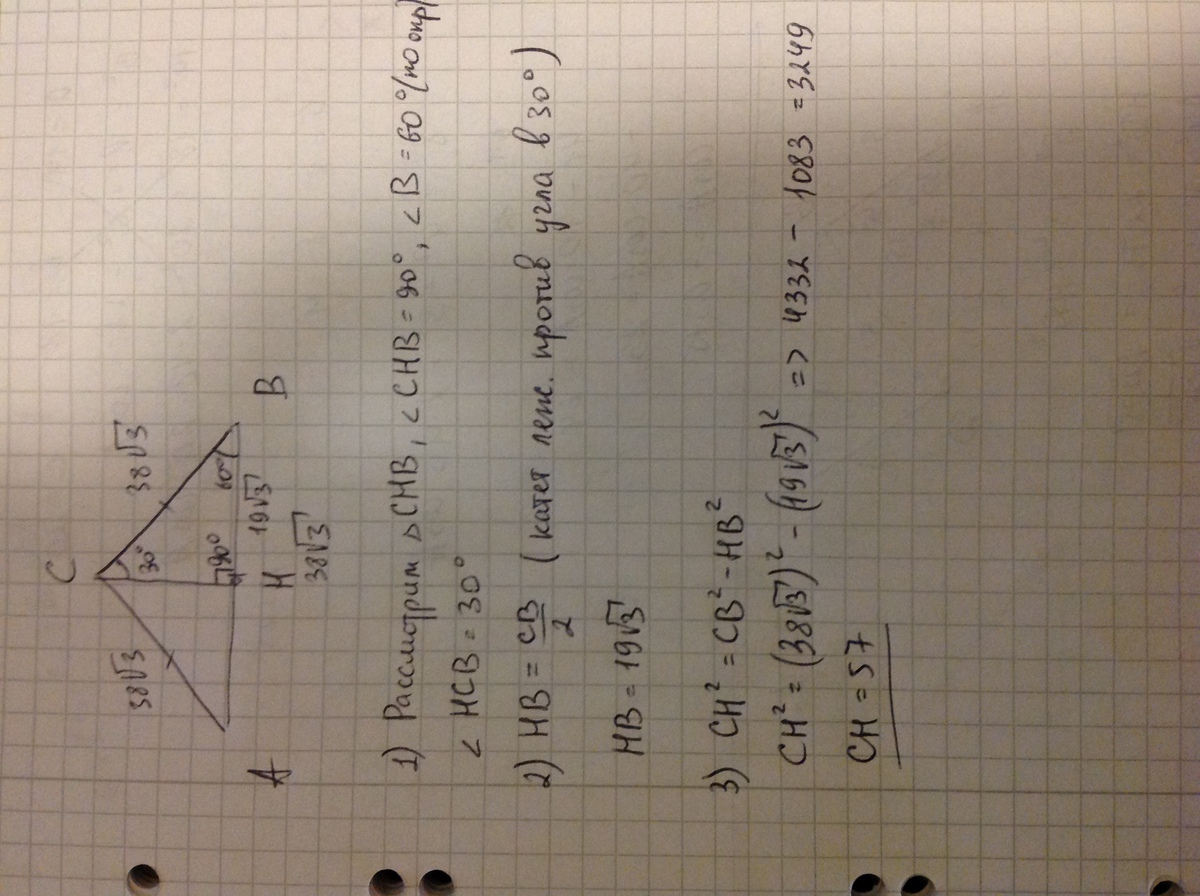 C
38√3
38√3
30°
90°
60°
19√3
A
H
B
38√3
1) Рассмотрим △CHB, ∠CHB = 90°, ∠B = 60° (по опр)
∠HCB = 30°
2) HB = CB/2 (катет леж. против угла в 30°)
HB = 19√3
3) CH² = CB² - HB²
CH² = (38√3)² - (19√3)² => 4332 - 1083 = 3249
CH = 57